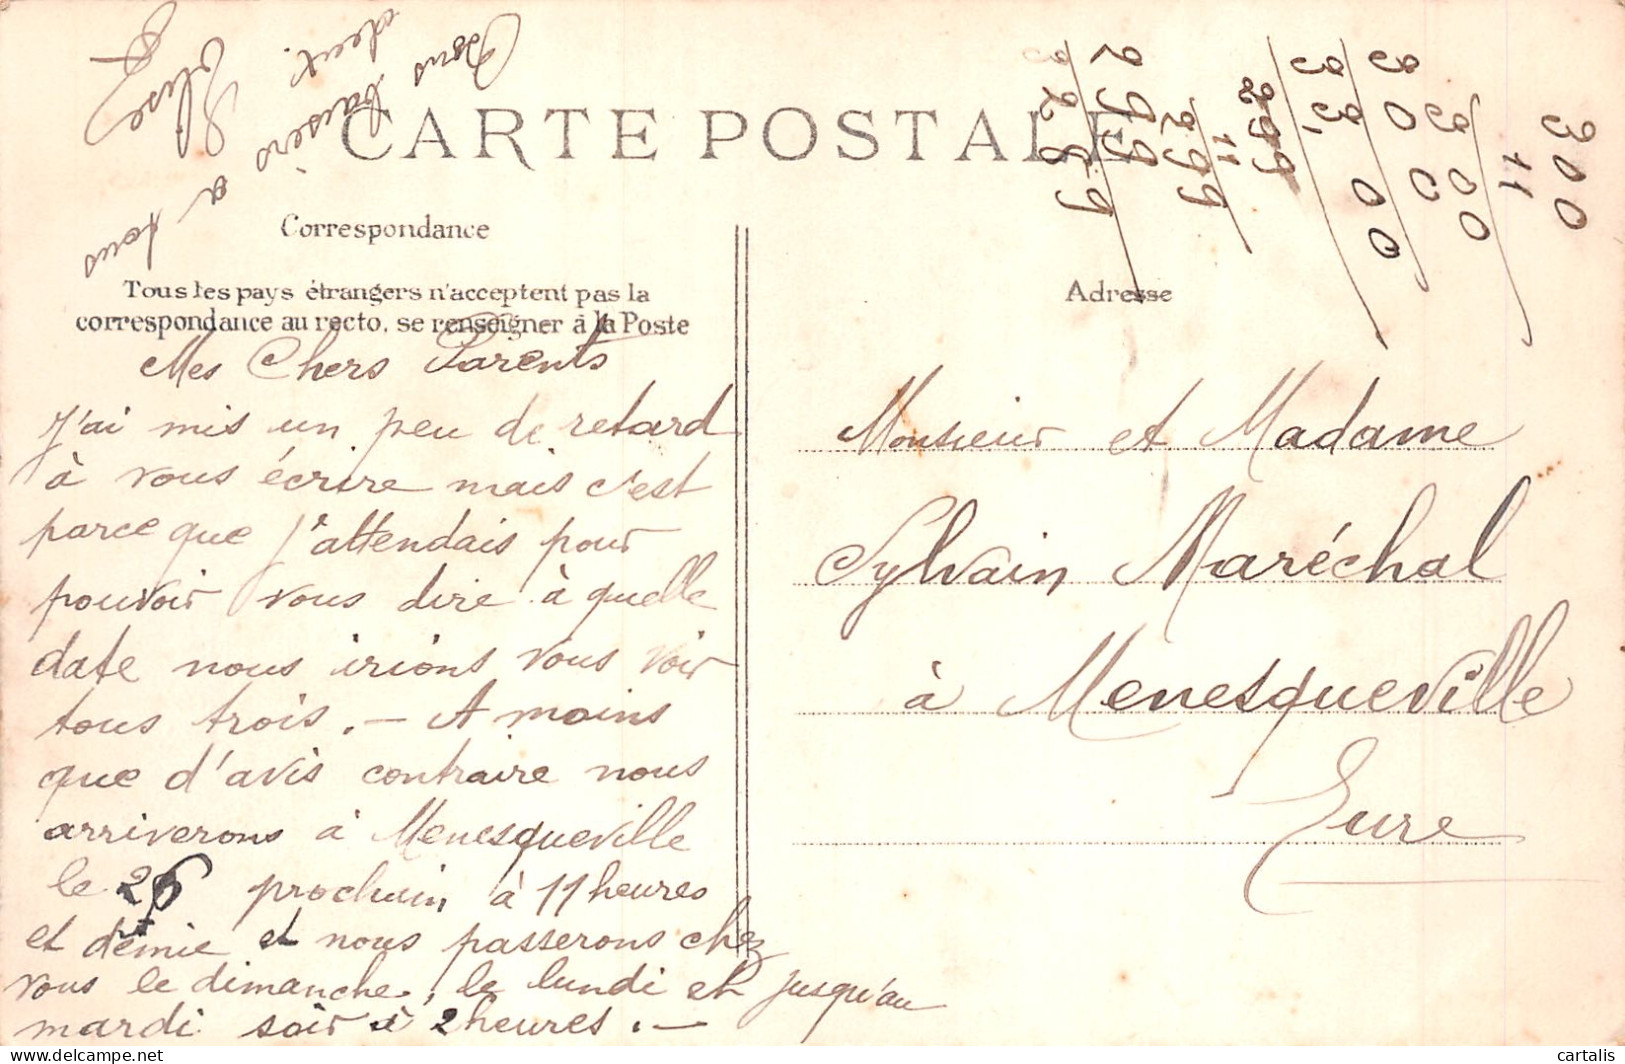 CARTE POSTALE
Correspondance
Tous les pays étrangers n'acceptent pas la
correspondance au recto, se renseigner à la Poste
Mes Chers Parents
J'ai mis un peu de retard
à vous écrire mais c'est
parce que j'attendais pour
pouvoir vous dire à quelle
date nous irions vous voir
tous trois. — A moins
que d'avis contraire nous
arriverons à Menesqueville
le 25 prochain à 11 heures
et demie et nous passerons chez
vous le dimanche, le lundi et jusqu'au
mardi soir à 2 heures. —
Bons baisers à tous
deux.
Elise
Adresse
Monsieur et Madame
Sylvain Maréchal
à Menesqueville
Eure
300
11
300
300
3300
299
11
299
299
3289